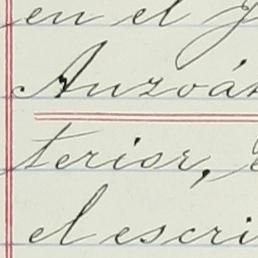 en el J
Anzoá
terior, e
el escri